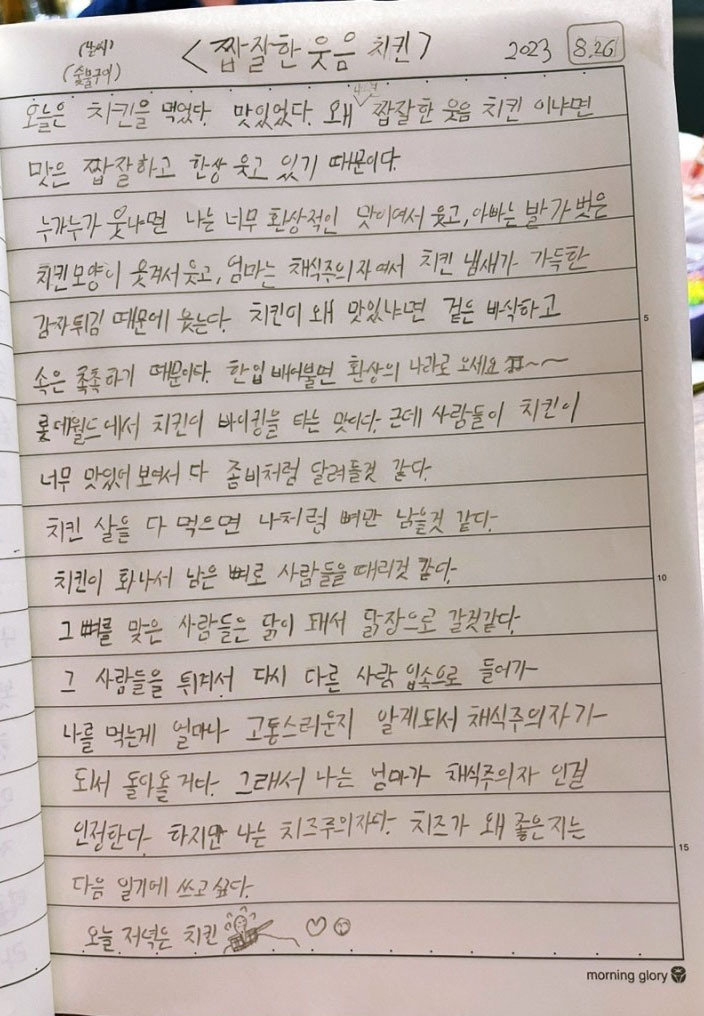 (날씨)
(숯불구이)
<짭잘한 웃음 치킨>
2023 8.26
오늘은 치킨을 먹었다. 맛있었다. 왜 짭잘한 웃음 치킨 이냐면
맛은 짭잘하고 한상 웃고 있기 때문이다.
누가누가 웃냐면 나는 너무 환상적인 맛이여서 웃고, 아빠는 발가벗은
치킨모양이 웃겨서 웃고, 엄마는 채식주의자여서 치킨 냄새가 가득한
감자튀김 때문에 웃는다. 치킨이 왜 맛있냐면 겉은 바삭하고
속은 촉촉하기 때문이다. 한입 베어불면 환상의 나라로 오세요 ♬~~
롯데월드에서 치킨이 바이킹을 타는 맛이다. 근데 사람들이 치킨이
너무 맛있어 보여서 다 좀비처럼 달려들것 같다.
치킨 살을 다 먹으면 나처럼 뼈만 남을것 같다.
치킨이 화나서 남은 뼈로 사람들을 때리것 같다.
그 뼈를 맞은 사람들은 닭이 돼서 닭장으로 갈것같다.
그 사람들을 튀겨서 다시 다른 사람 입속으로 들어가
나를 먹는게 얼마나 고통스러운지 알게되서 채식주의자가
되서 돌아올 거다. 그래서 나는 엄마가 채식주의자 인걸
인정한다. 하지만 나는 치즈주의자다. 치즈가 왜 좋은지는
다음 일기에 쓰고싶다.
오늘 저녁은 치킨 ♡
5
10
15
morning glory